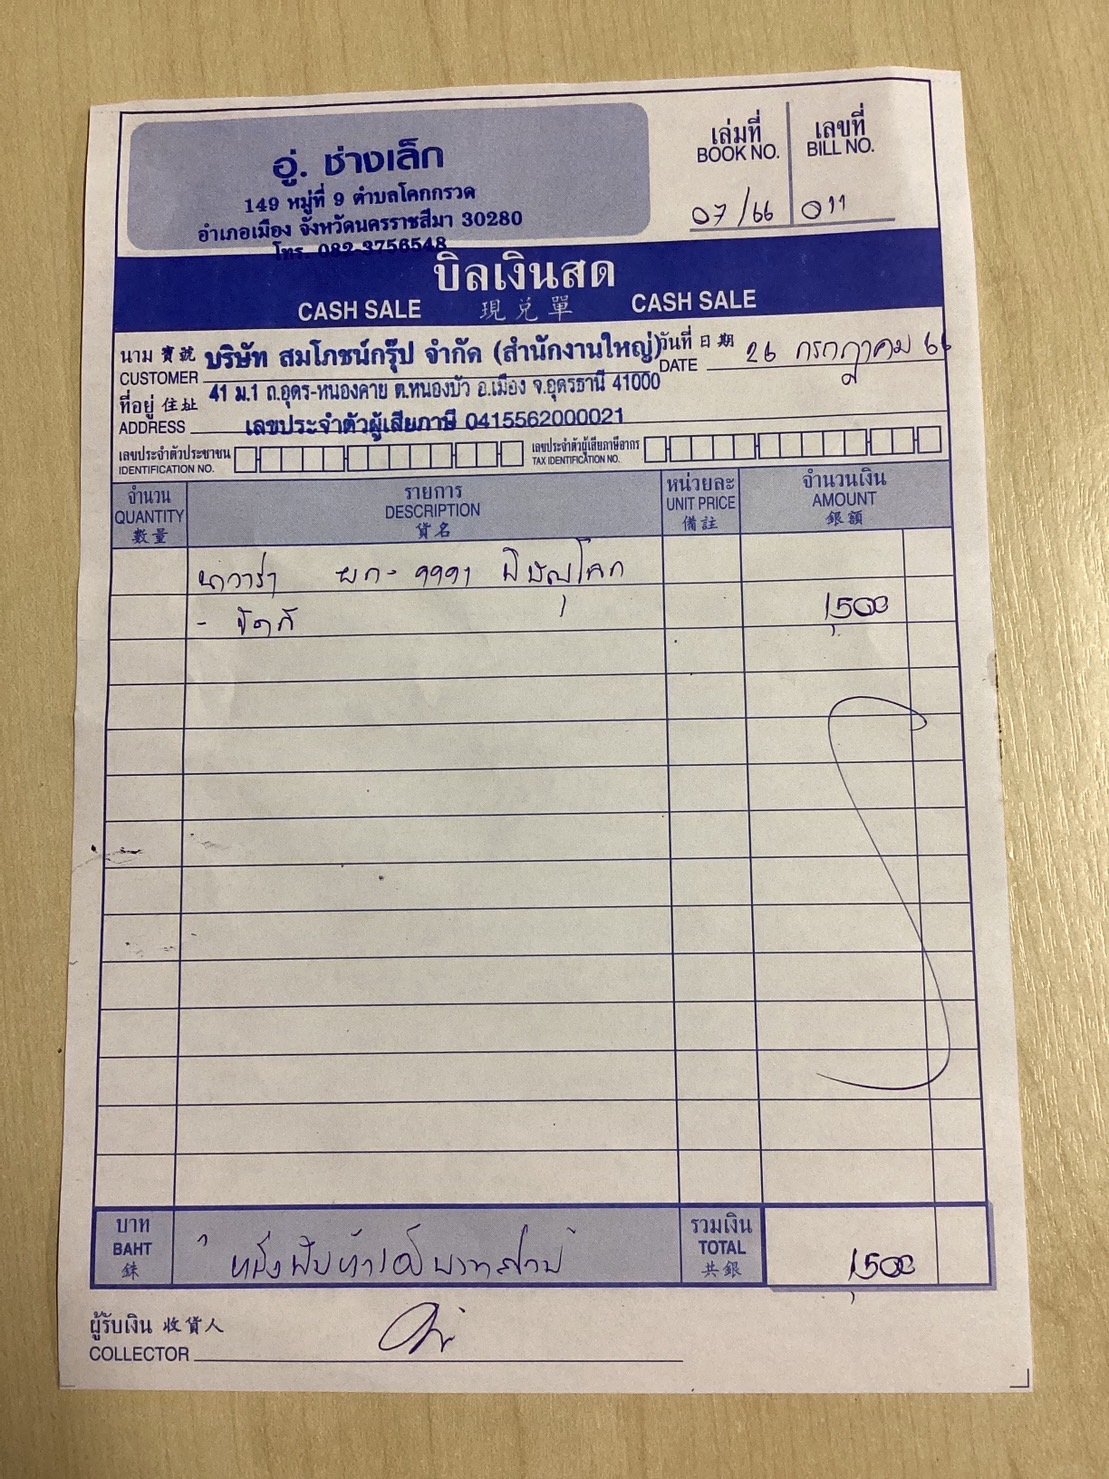 อู่. ช่างเล็ก
149 หมู่ที่ 9 ตำบลโคกกรวด
อำเภอเมือง จังหวัดนครราชสีมา 30280
โทร. 082-3756548
เล่มที่ เลขที่
BOOK NO. BILL NO.
07/66 011
บิลเงินสด
CASH SALE 現兑單 CASH SALE
นาม 寶號 บริษัท สมโภชน์กรุ๊ป จำกัด (สำนักงานใหญ่) วันที่ 日期
CUSTOMER DATE 26 กรกฎาคม 66
ที่อยู่ 住址 41 ม.1 ถ.อุดร-หนองคาย ต.หนองบัว อ.เมือง จ.อุดรธานี 41000
ADDRESS เลขประจำตัวผู้เสียภาษี 0415562000021
เลขประจำตัวประชาชน เลขประจำตัวผู้เสียภาษีอากร
IDENTIFICATION NO. TAX IDENTIFICATION NO.
จำนวน รายการ หน่วยละ จำนวนเงิน
QUANTITY DESCRIPTION UNIT PRICE AMOUNT
數量 貨名 備註 銀額
นาวาร่า ยก- 9991 พิษณุโลก
- 1,500
บาท รวมเงิน
BAHT หนึ่งพันห้าร้อยบาทถ้วน TOTAL 1,500
銖 共銀
ผู้รับเงิน 收貨人
COLLECTOR